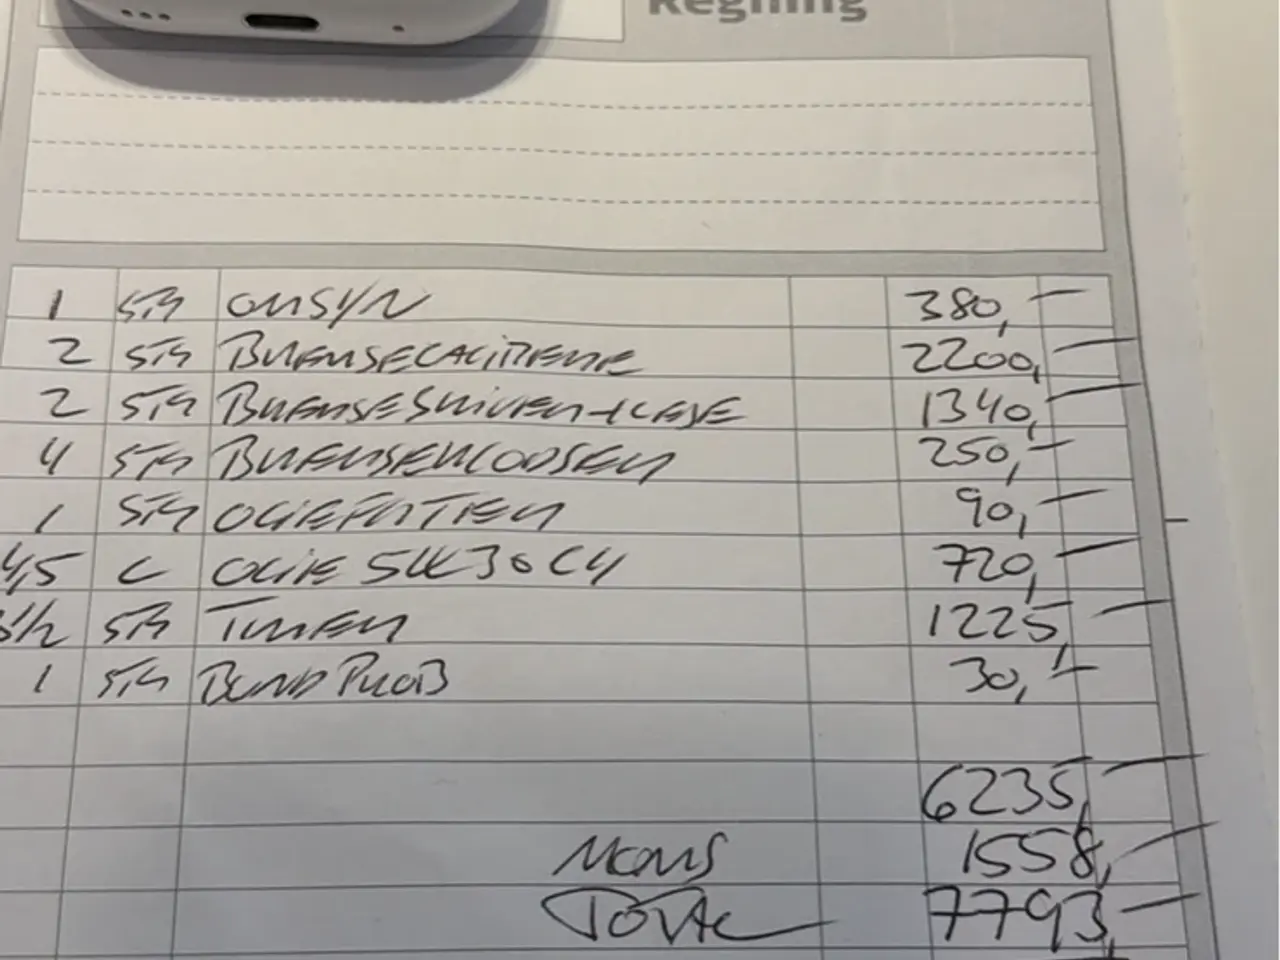 Regning
1 STK OMSYN 380,-
2 STK BREMSECALIPERE 2200,-
2 STK BREMSESKIVER+KLODSE 1340,-
4 STK BREMSEKLODSER 250,-
1 STK OLIEFILTER 90,-
4,5 L OLIE 5W30 C4 720,-
3 1/2 STK TIMER 1225,-
1 STK BUNDPROP 30,-
6235,-
MOMS 1558,-
TOTAL 7793,-